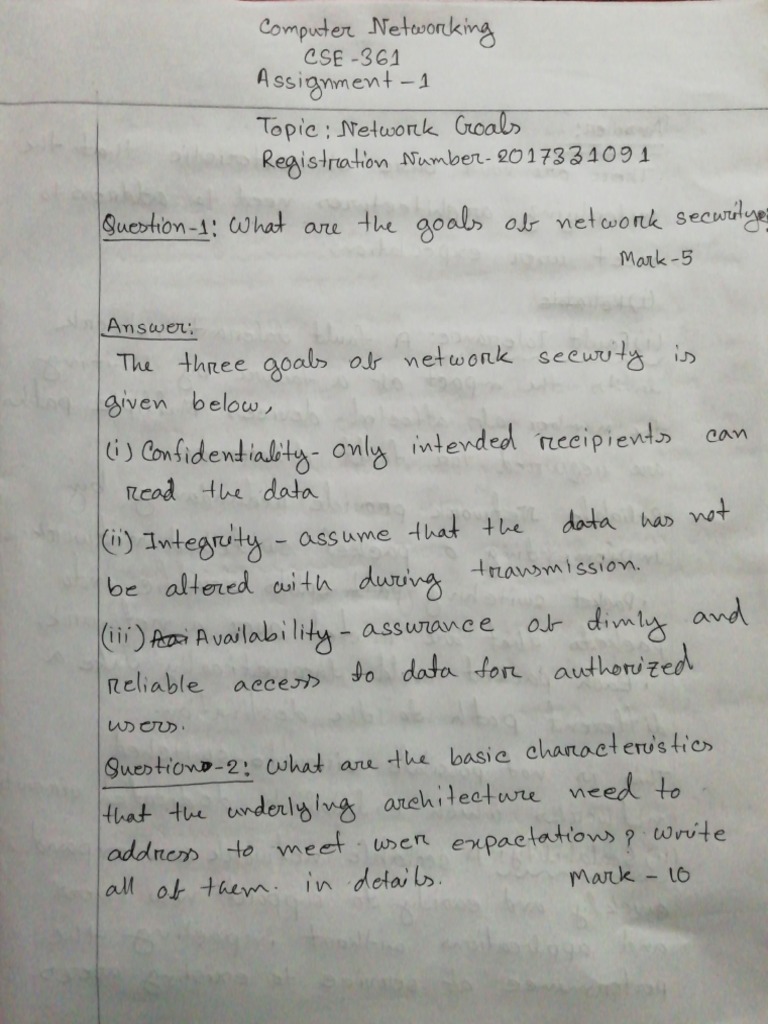 Computer Networking
CSE-361
Assignment-1
Topic: Network Goals
Registration Number-2017331091
Question-1: What are the goals of network security?
Mark-5
Answer:
The three goals of network security is
given below,
(i) Confidentiality- only intended recipients can
read the data
(ii) Integrity - assume that the data has not
be altered with during transmission.
(iii) Availability - assurance of timly and
reliable access to data for authorized
users.
Question-2: What are the basic characteristics
that the underlying architecture need to
address to meet user expactations? Write
all of them in details. Mark-10